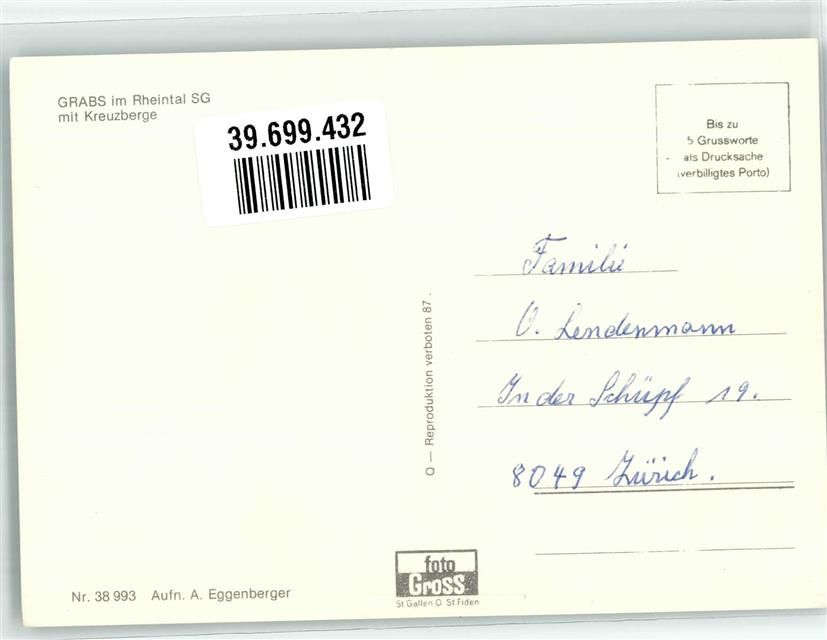 GRABS im Rheintal SG
mit Kreuzberge
39.699.432
Bis zu
5 Grussworte
als Drucksache
(verbilligtes Porto)
Familie
O. Lendenmann
In der Schüpf 19.
8049 Zürich.
Q — Reproduktion verboten 87.
Nr. 38 993 Aufn. A. Eggenberger
foto
Gross
St. Gallen O St. Fiden